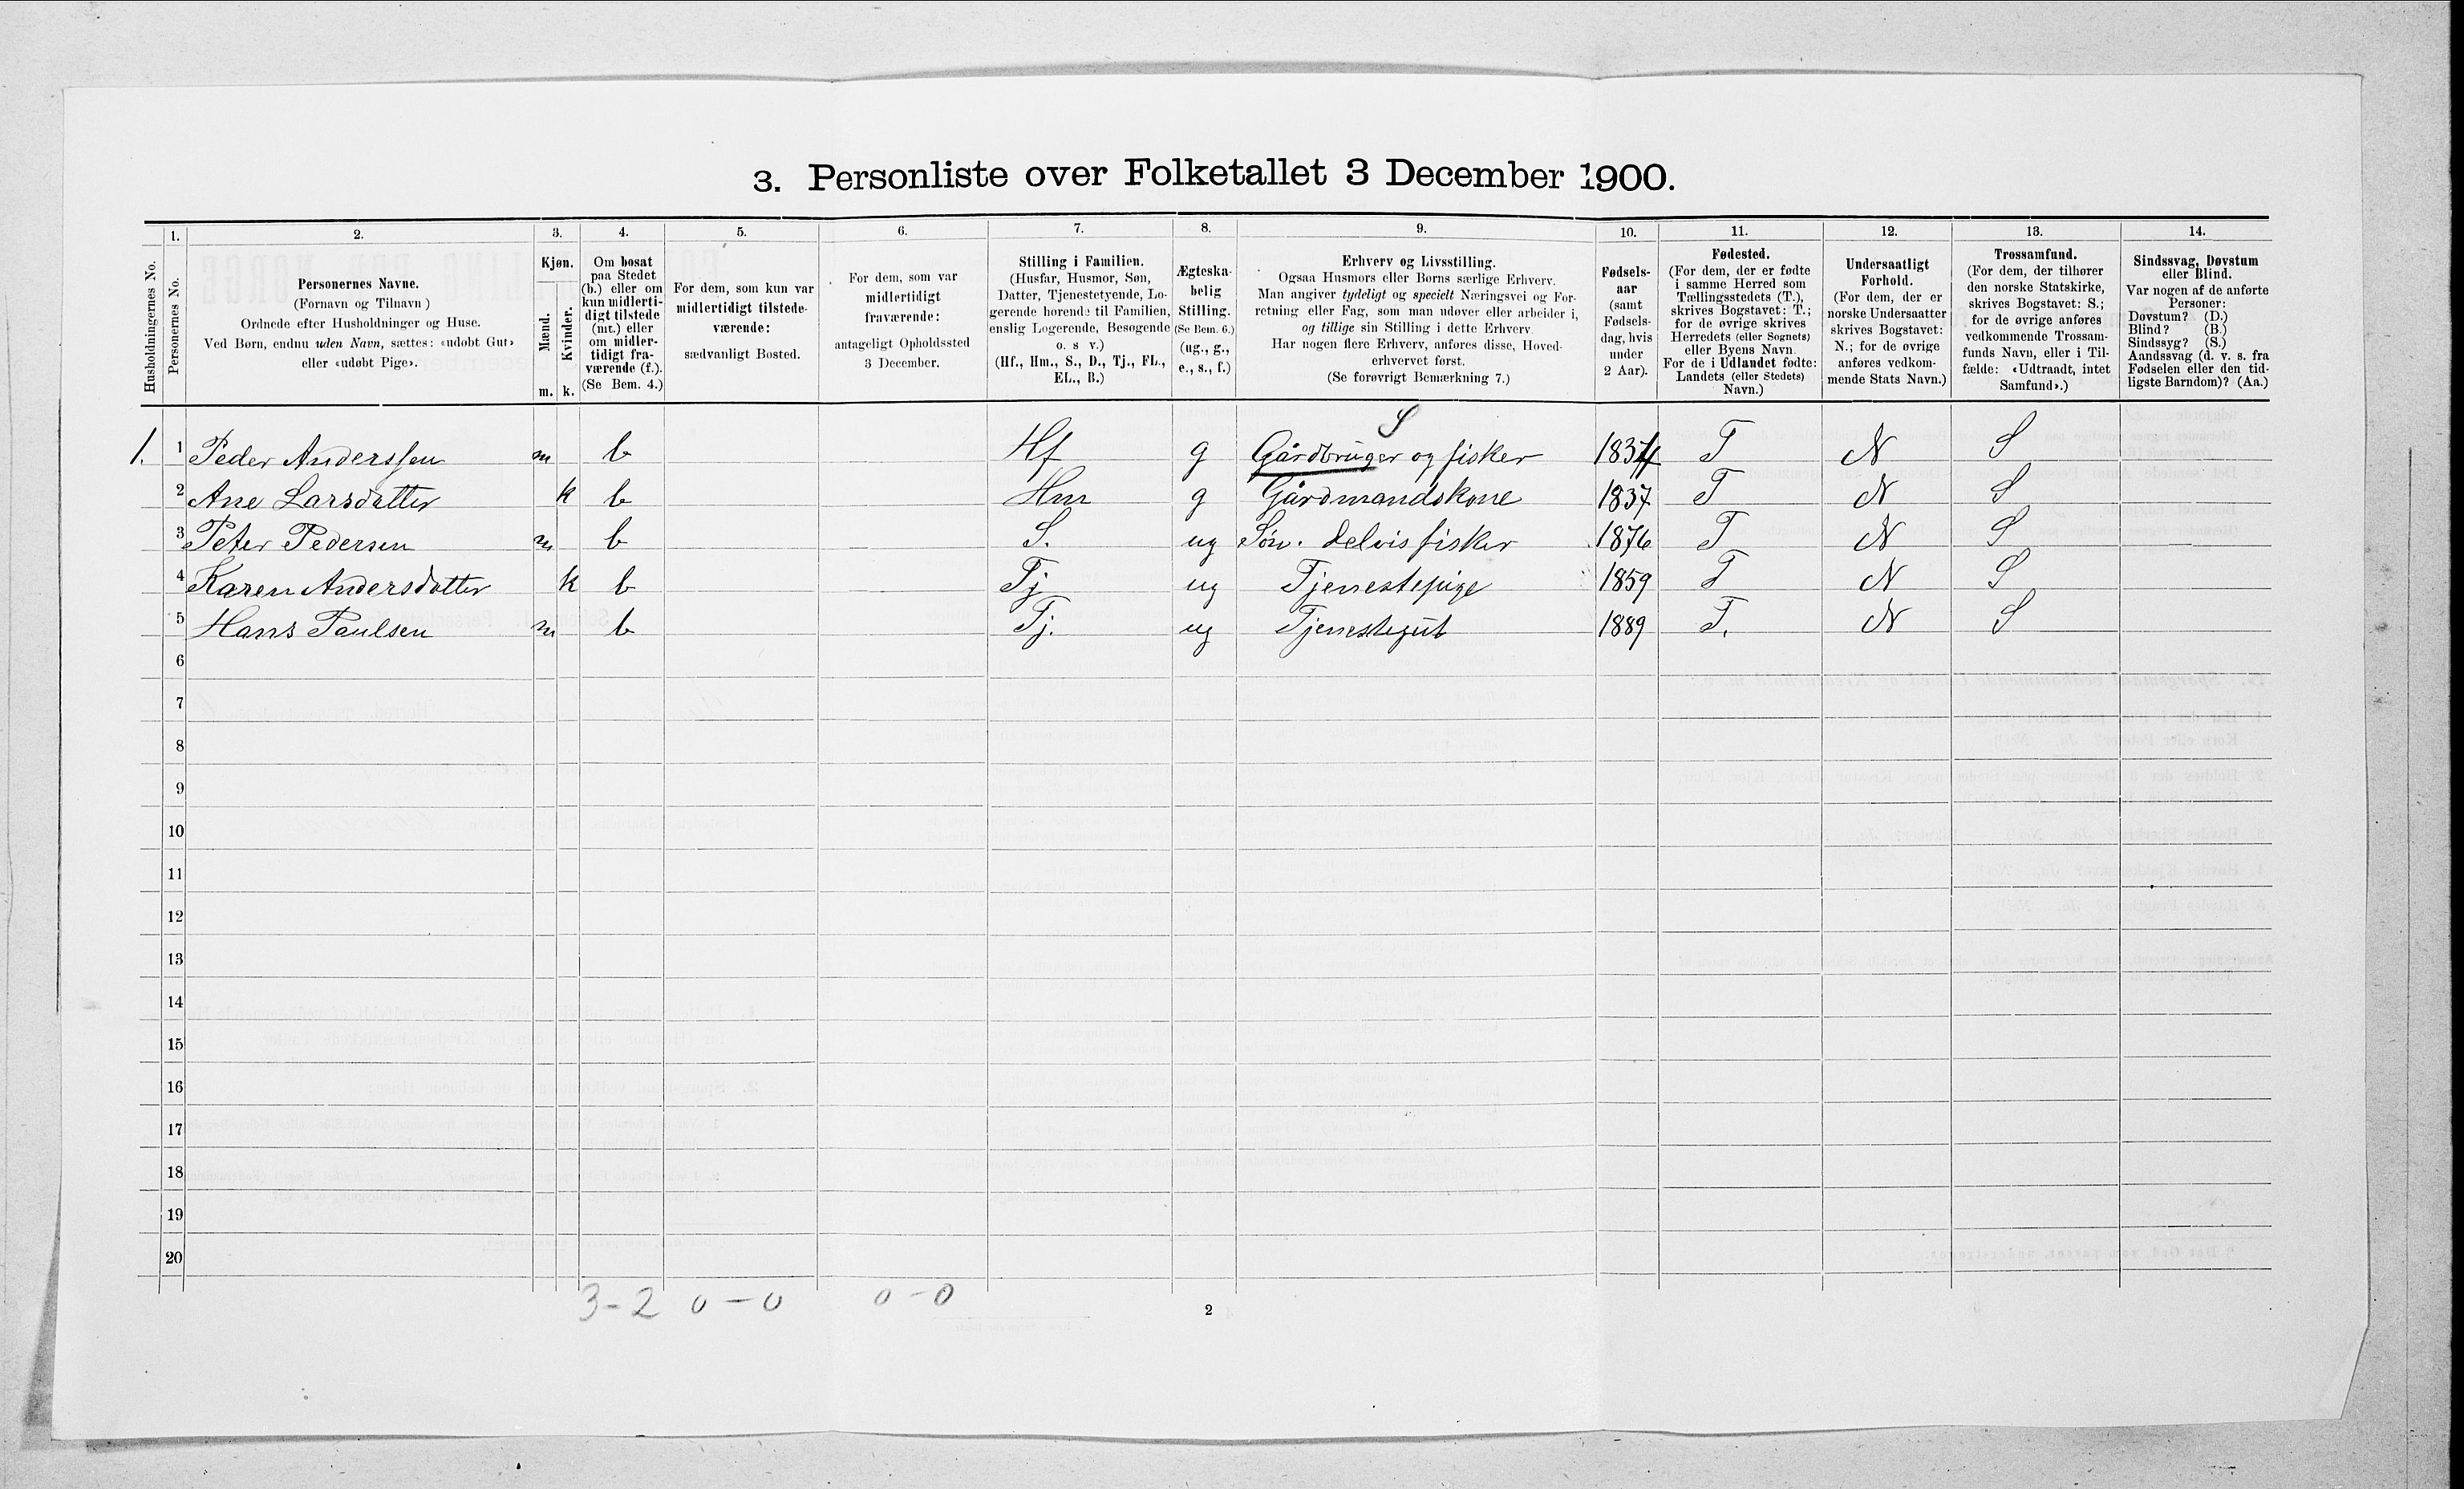 3. Personliste over Folketallet 3 December 1900.
Husholdningernes No.
1.
Personernes No.
2.
Personernes Navne.
(Fornavn og Tilnavn)
Ordnede efter Husholdninger og Huse.
Ved Børn, endnu uden Navn, sættes: «udøbt Gut»
eller «udøbt Pige».
3.
Kjøn.
Mænd.
Kvinder.
m. k.
4.
Om bosat
paa Stedet
(b.) eller om
kun midlerti-
digt tilstede
(mt.) eller
om midler-
tidigt fra-
værende (f.).
(Se Bem. 4.)
5.
For dem, som kun var
midlertidigt tilstede-
værende:
sædvanligt Bosted.
6.
For dem, som var
midlertidigt
fraværende:
antageligt Opholdssted
3 December.
7.
Stilling i Familien.
(Husfar, Husmor, Søn,
Datter, Tjenestetyende, Lo-
gerende hørende til Familien,
enslig Logerende, Besøgende
o. s. v.)
(Hf., Hm., S., D., Tj., FL.,
EL., B.)
8.
Ægteska-
belig
Stilling.
(Se Bem. 6.)
(ug., g.,
e., s., f.)
9.
Erhverv og Livsstilling.
Ogsaa Husmors eller Børns særlige Erhverv.
Man angiver tydeligt og specielt Næringsvei og For-
retning eller Fag, som man udøver eller arbeider i,
og tillige sin Stilling i dette Erhverv.
Har nogen flere Erhverv, anføres disse, Hoved-
erhvervet først.
(Se forøvrigt Bemærkning 7.)
10.
Fødsels-
aar
(samt
Fødsels-
dag, hvis
under
2 Aar).
11.
Fødested.
(For dem, der er fødte
i samme Herred som
Tællingsstedets (T.),
skrives Bogstavet: T.;
for de øvrige skrives
Herredets (eller Sognets)
eller Byens Navn.
For de i Udlandet fødte:
Landets (eller Stedets)
Navn.)
12.
Undersaatligt
Forhold.
(For dem, der er
norske Undersaatter
skrives Bogstavet:
N.; for de øvrige
anføres vedkom-
mende Stats Navn.)
13.
Trossamfund.
(For dem, der tilhører
den norske Statskirke,
skrives Bogstavet: S.;
for de øvrige anføres
vedkommende Trossam-
funds Navn, eller i Til-
fælde: «Udtraadt, intet
Samfund».)
14.
Sindssvag, Døvstum
eller Blind.
Var nogen af de anførte
Personer:
Døvstum? (D.)
Blind? (B.)
Sindssyg? (S.)
Aandssvag (d. v. s. fra
Fødselen eller den tid-
ligste Barndom)? (Aa.)
S
1. 1 Peder Anderssen m b Hf g Gårdbruger og fisker 1834 T N S
2 Ane Larsdatter k b Hm g Gårdmandskone 1837 T N S
3 Peter Pedersen m b S. ug Søn. delvis fisker 1876 T N S
4 Karen Andersdatter k b Tj ug Tjenestepige 1859 T N S
5 Hans Paulsen m b Tj. ug Tjenestegut 1889 T. N S
6
7
8
9
10
11
12
13
14
15
16
17
18
19
20
3-2 0-0 0-0
2